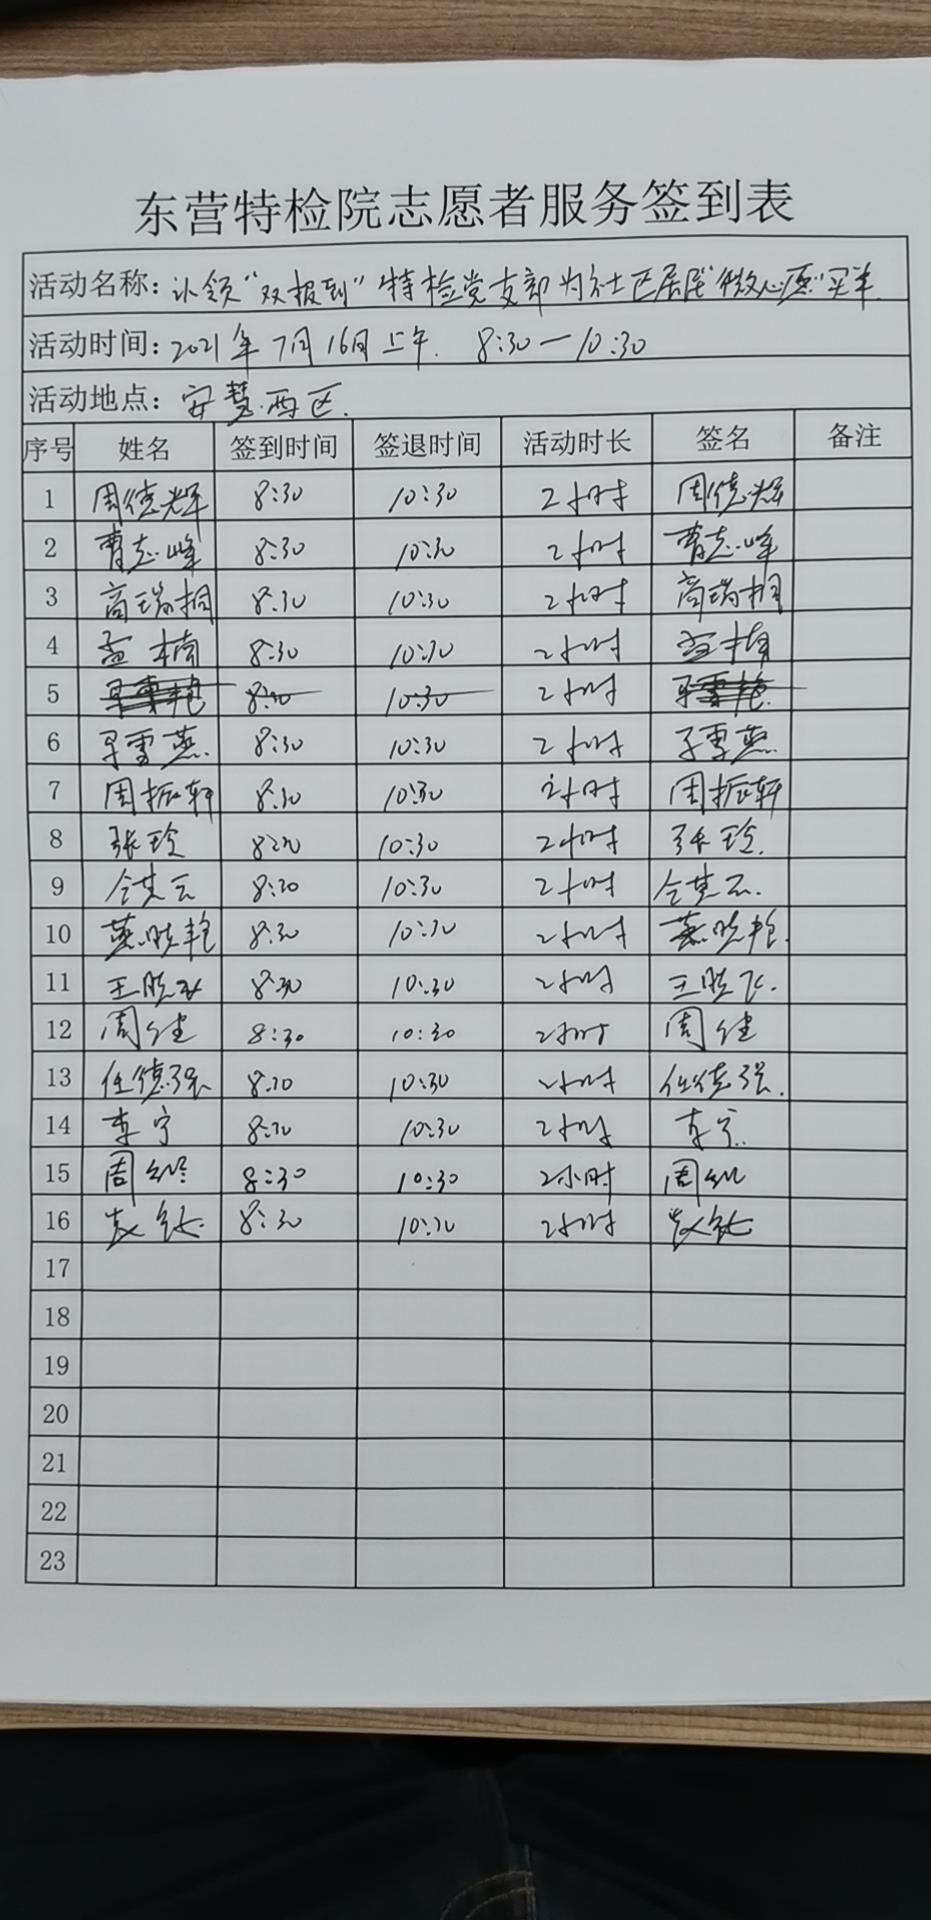 东营特检院志愿者服务签到表
活动名称：认领“双报到”特检党支部为社区居民“微心愿”买单
活动时间：2021年7月16日上午 8:30—10:30
活动地点：安慧西区.
序号 姓名 签到时间 签退时间 活动时长 签名 备注
1 周德辉 8:30 10:30 2小时 周德辉
2 曹志峰 8:30 10:30 2小时 曹志峰
3 高瑞桐 8:30 10:30 2小时 高瑞桐
4 孟楠 8:30 10:30 2小时 孟楠
5 8:30 10:30 2小时
6 雪燕 8:30 10:30 2小时 雪燕
7 周振轩 8:30 10:30 2小时 周振轩
8 张玲 8:30 10:30 2小时 张玲
9 8:30 10:30 2小时
10 燕晓艳 8:30 10:30 2小时 燕晓艳
11 王晓飞 8:30 10:30 2小时 王晓飞
12 周健 8:30 10:30 2小时 周健
13 任德强 8:30 10:30 2小时 任德强
14 李宁 8:30 10:30 2小时 李宁
15 周 8:30 10:30 2小时 周
16 8:30 10:30 2小时
17
18
19
20
21
22
23